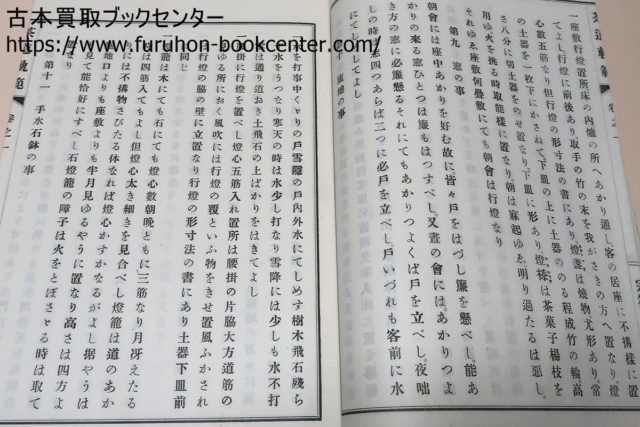 古本買取ブックセンター
https://www.furuhon-bookcenter.com/
一座敷行燈置所床の内爐の所へあかり通し客の居座に不搆樣に置
てよし行燈に前後あり取手の竹の末を我がさきの方へ置なり燈
心數五筋なり行燈の形寸法の書にあり燈盞は燒物尤形あり、常
土器を一枚下にかさねて下皿の上に土器ののる程成竹の輪高
さ八分に切土器をのせ置なり下皿に形あり燈は茶菓子楊枝を
用ゆ火を挑る時取能樣に置なり朝は寐起ゆゑ明り過たるは惡し、
それゆゑ座敷何疊敷にても朝會は行燈なり
第九 窓の事
朝會には座中あかりを好む故に皆々戸をはづし簾を懸べし、能あ
かりの來る窓ひとつは簾もはつすべし、又晝の會には、あかりつよ
き方の窓に必簾懸るそれにてもあかりつよくば戸を立べし、夜咄
の時も窓四つあらば二つに必戸を立べし、戸いづれも客前に水
にてしめしてよし
の事
を打事中くゞりの戸雪隱の戸内外水にてしめす樹木飛石殘ら
水をうつなり寒天の時は水少し打なり雪降には少しも水不打
は通り道おき土飛石の上ばかりをはきてよし
掛に行燈を置べし燈心五筋入れ置所は腰掛の片脇大方道筋の
ゆる所におく風吹には行燈の覆といふ物をきせ置風ふかされ
行燈の脇の壁に立置なり行燈の形寸法の書にあり土器下皿前
同じ
籠は木にても石にても燈心數朝晩ともに三筋なり月冴えたる
は四筋入てもよし但燈心太き細きを見合べし燈籠は道のあか
りには不搆物さびたる体なれば燈心かすかなるがよし据やうは
地口よりも座敷よりも半月見ゆるやうに置なり高さは四方よ
見て能恰好にすべし石燈籠の障子は火をとぼさゞる時は取て
なり
第十一 手水石鉢の事
範
卷之一